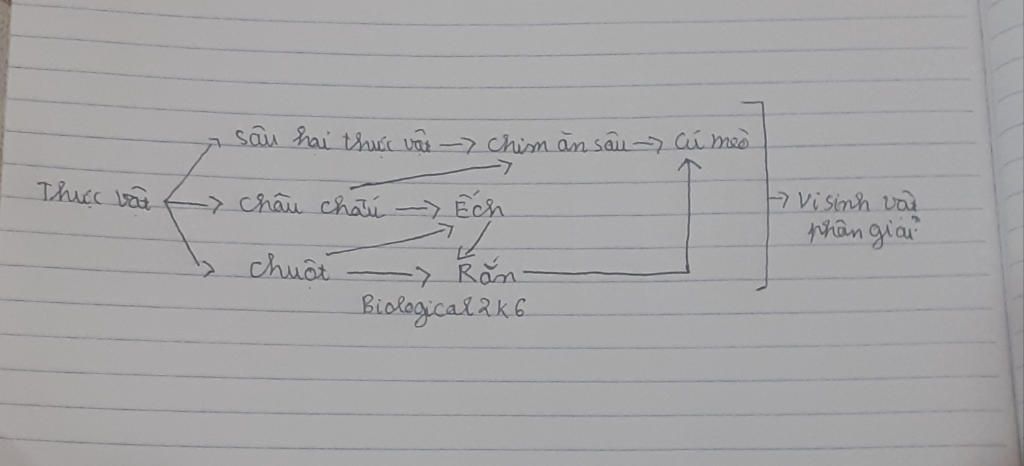 sâu hại thực vật → chim ăn sâu → cú mèo
Thực vật → châu chấu → Ếch → vi sinh vật
phân giải
chuột → Rắn
Biological2k6